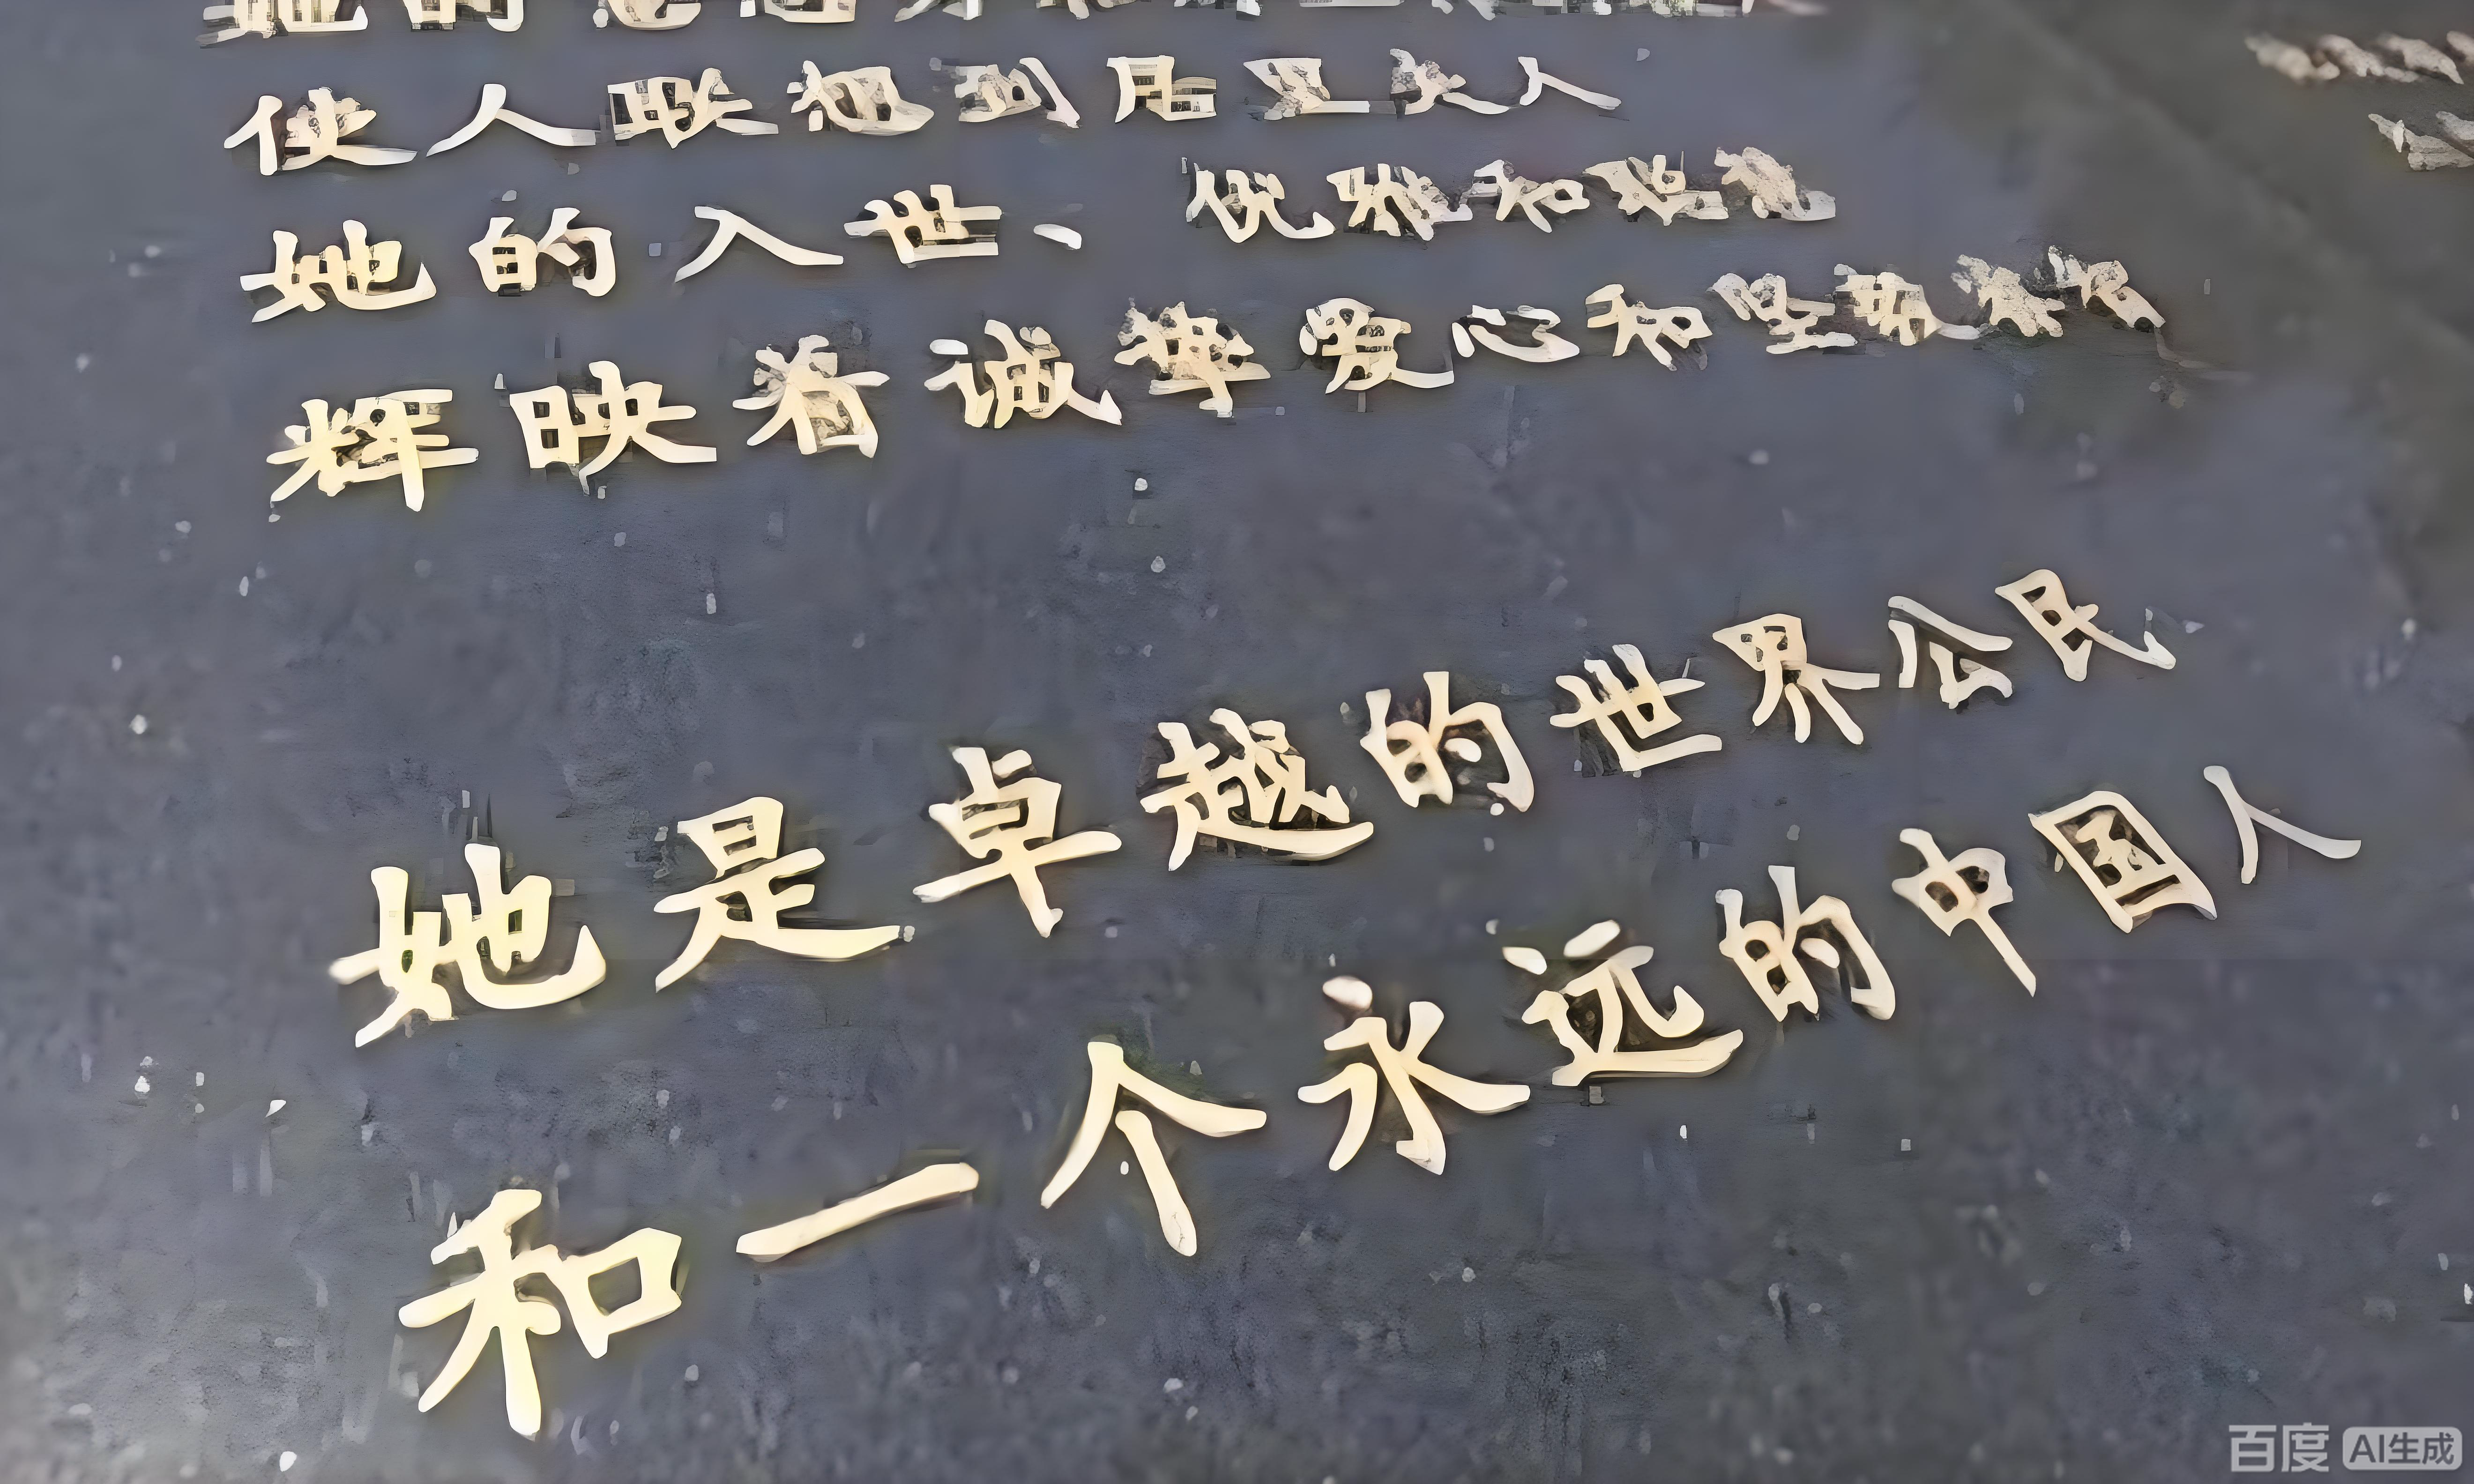 她的
使人联想到居里夫人
她的入世、优雅和聪慧
辉映着诚挚爱心和坚
她是卓越的世界公民
和一个永远的中国人
百度 AI生成